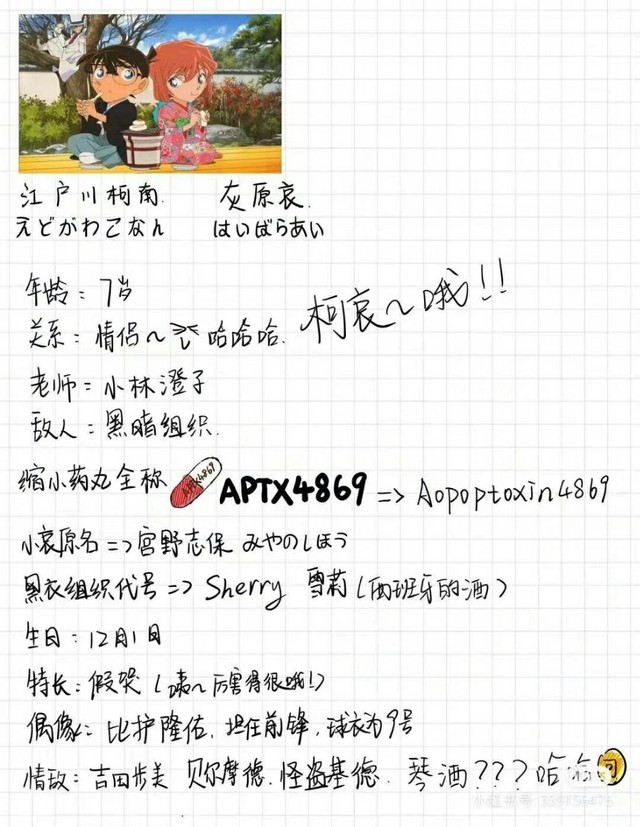 江户川柯南. 灰原哀.
えどがわこなん はいばらあい
年龄：7岁
关系：情侣～ 哈哈哈. 柯哀～哦!!
老师：小林澄子
敌人：黑暗组织.
缩小药丸全称 APTX4869 APTX4869 => Aopoptoxin4869
小哀原名 => 宫野志保 みやのしほう
黑衣组织代号 => Sherry 雪莉（西班牙的酒）
生日：12月1日
特长：假哭（咦～厉害得很哦!）
偶像：比护隆佑. 担任前锋, 球衣为9号
情敌：吉田步美 贝尔摩德. 怪盗基德. 琴酒??? 哈哈
小红书号